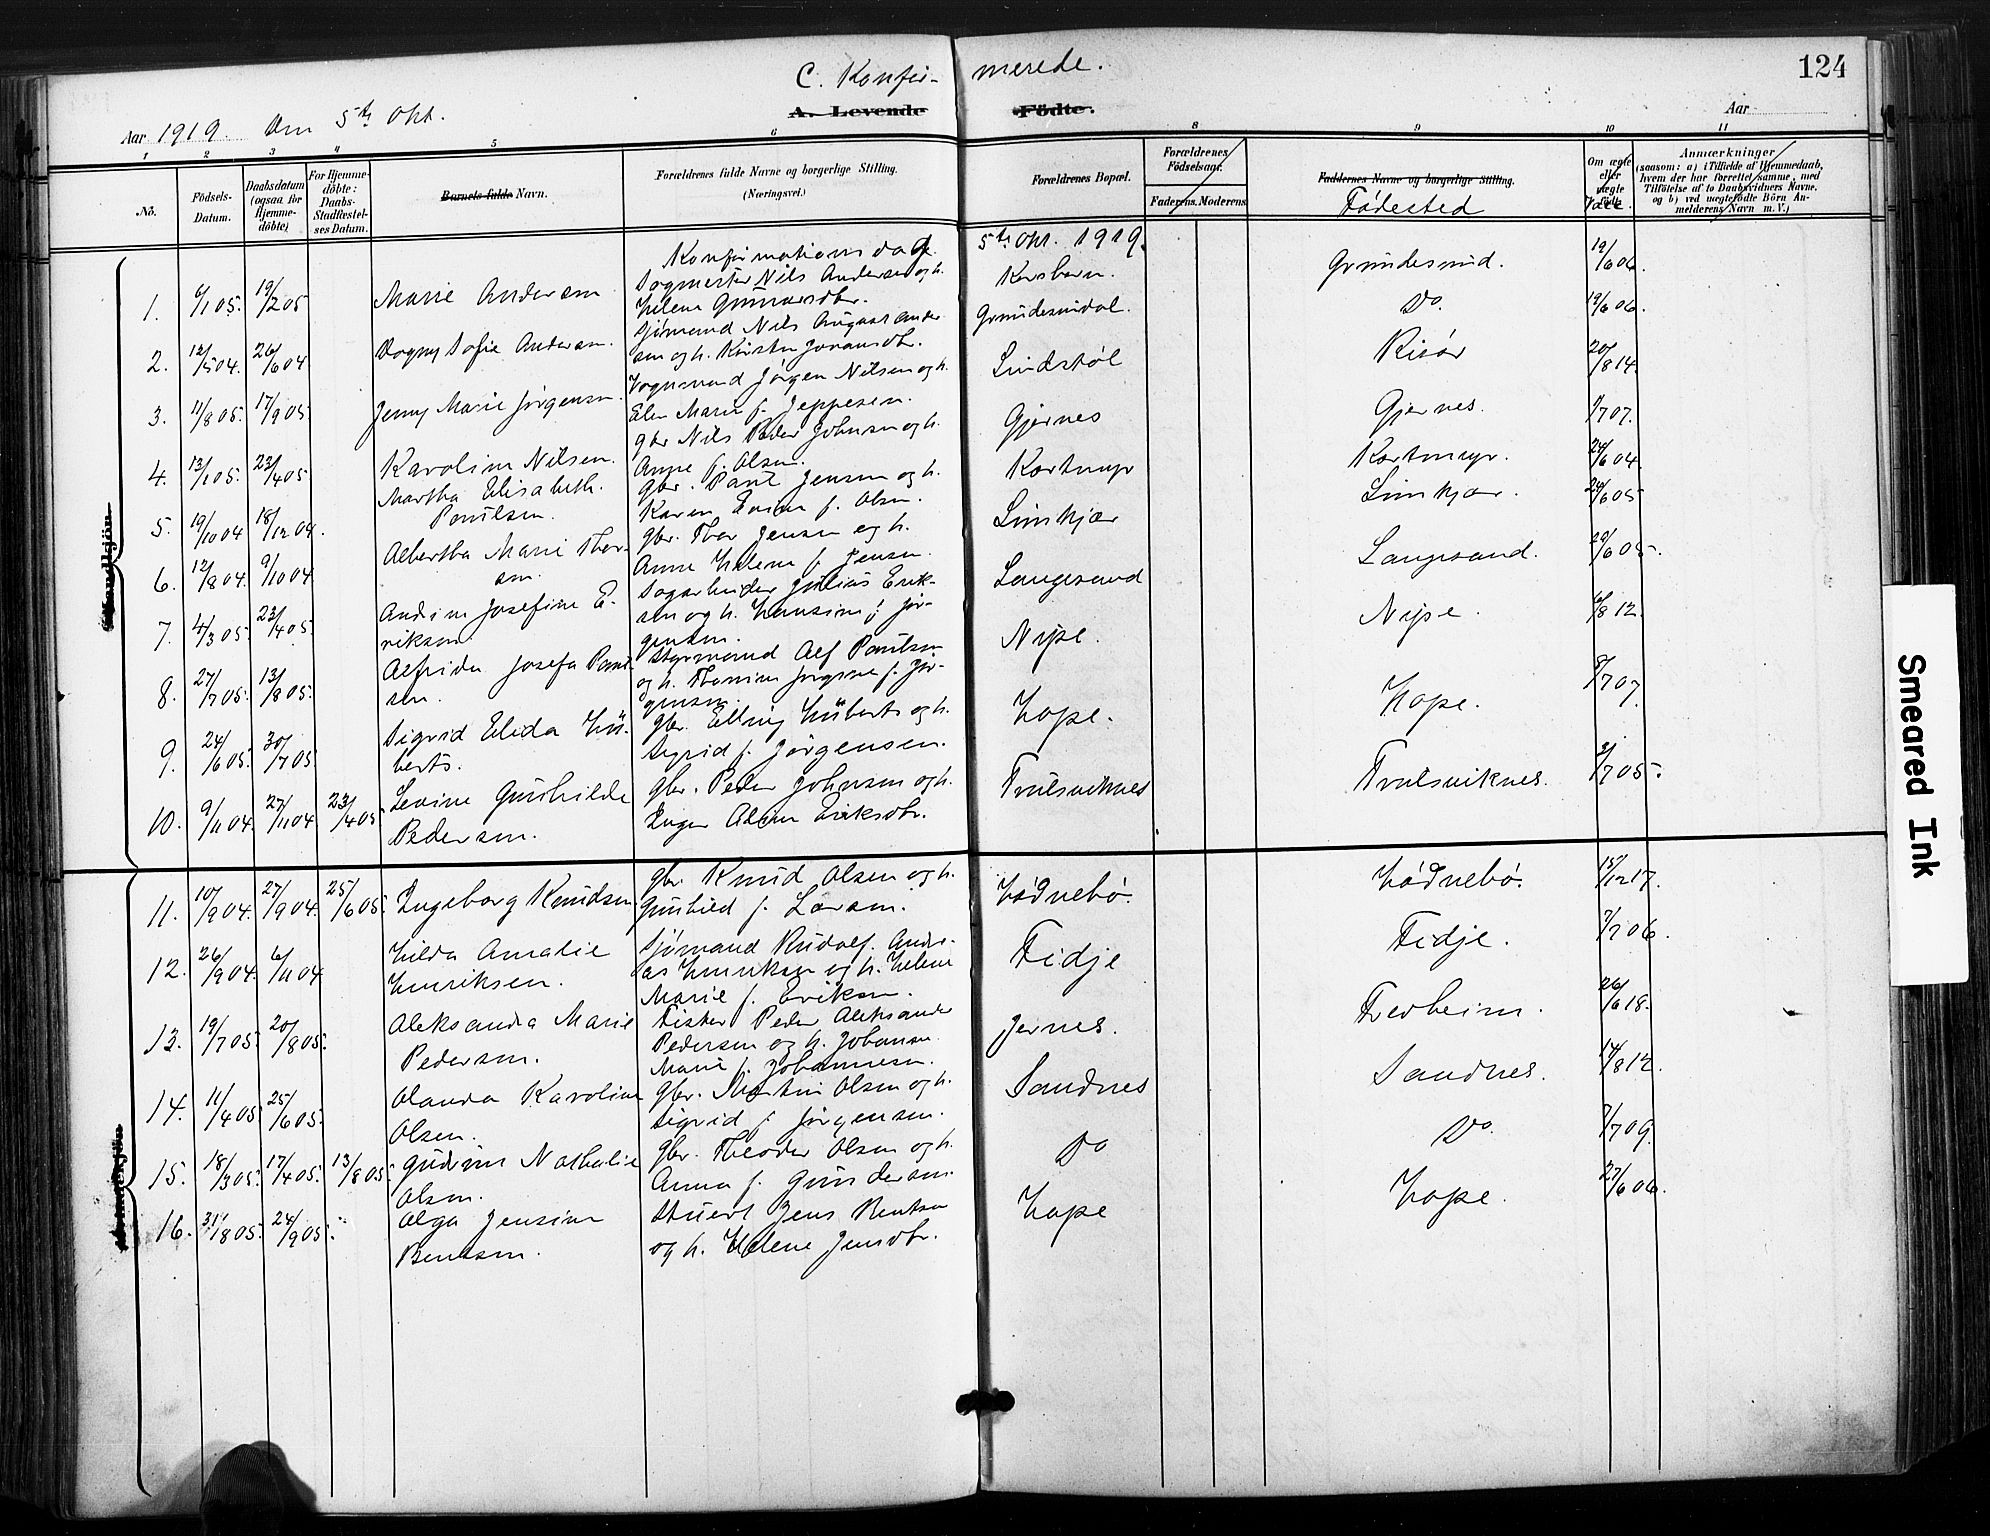 124
C. Konfir- merede.
A. Levende Födte.
Aar 1919. Den 5te Okt.
Aar
1 2 3 4 5 6 8 9 10 11
No.
Födsels-Datum.
Daabsdatum (ogsaa for Hjemme-döbte)
For Hjemme-döbte: Daabs-Stadfæstel-ses Datum.
Barnets fulde Navn.
Forældrenes fulde Navne og borgerlige Stilling.
(Næringsvei.)
Forældrenes Bopæl.
Forældrenes Födselsaar.
Faderens. Moderens.
Faddernes Navne og borgerlige Stilling.
Fødested
Om ægte eller uægte født.
Vacc.
Anmærkninger
(saasom: a) i Tilfælde af Hjemmedaab,
hvem der har forrettet samme, med
Tilföielse af to Daabsvidners Navne,
og b) ved uægtefödte Börn An-
melderens Navn m. V.)
Konfirmationsdag 5te Okt. 1919.
1. 6/1 05. 19/2 05 Marie Andersen Sogmester Nils Andersen og h. Helene Gunnarsdtr. Korsbern. Grundesund. 19/6 06.
2. 12/5 04. 26/6 04 Dagny Sofie Andersen. Sjømand Nils August Ander sen og h. Kirsten Joransdtr. Grundesundal. Do. 19/6 06.
3. 11/8 05. 17/9 05 Jenny Marie Jørgensen. Vognmand Jørgen Nilsen og h. Elen Marie f. Jeppesen. Lindstøl Risør 20/8 14.
4. 13/1 05. 23/4 05. Karoline Nilsen. gbr. Nils Peder Johnsen og h. Anne f. Olsen. Gjernes Gjernes. /7 07.
5. 19/10 04 18/12 04. Martha Elisabeth. Poulsen. gbr. Paul Jensen og h. Karen f. Olsen. Kortmyr Kortmyr. 24/6 04.
6. 12/8 04. 9/10 04 Albertha Marie Thor- sen. gbr. Thor Jensen og h. Anne Helene f. Jensen. Limkjær Limkjær. 24/6 05
7. 4/3 05. 23/4 05. Andrine Josefine E- riksen. Sagarbeider Julius Erik- sen og h. Hansine f. Jør- gensen. Langesand Langesand. 29/6 05.
8. 27/7 05. 13/8 05. Alfrida Josefa Poul sen. Styrmand Alf Poulsen og h. Thomine Jørgine f. Jør- gensen. Nipe. Nipe. 6/8 12.
9. 24/6 05. 30/7 05 Sigrid Elida Hü- berts. gbr. Elling Hüberts og h. Sigrid f. Jørgensen. Hope. Hope. 8/7 07.
10. 9/11 04. 27/11 04 23/4 05 Levine Gunhilde Pedersen. gbr. Peder Johnsen og h. Inger Aline Eriksdtr. Trulsviknes Trulsviknes. /7 05.
11. 10/9 04. 27/9 04. 25/6 05. Ingeborg Knudsen gbr. Knud Olsen og h. Gunhild f. Larsen. Hødnebø. Hødnebø. 15/12 17.
12. 26/9 04. 6/11 04 Hilda Amalie Henriksen. Sjømand Rudolf Andre- as Henriksen og h. Helene Marie f. Eriksen. Fidje Fidje. 7/7 06.
13. 19/7 05. 20/8 05. Aleksandra Marie Pedersen. Fisker Peder Aleksander Pedersen og h. Johanne Marie f. Johannesen. Jernes. Fevheim. 26/6 18.
14. 11/4 05 25/6 05. Olanda Karoline Olsen. gbr. Martin Olsen og h. Sigrid f. Jørgensen. Sandnes Sandnes. 14/8 12.
15. 18/3 05. 17/4 05. 13/8 05. Gudrun Nathalie Olsen. gbr. Theodor Olsen og h. Anna f. Gundersen. Do Do. 7/7 09.
16. 31/8 05. 24/9 05. Olga Jensine Bentsen. Stuert Jens Bentsen og h. Helene Jensdtr. Hope Hope. 27/6 06.
Mandkjön
Kvindekjön
Smeared Ink